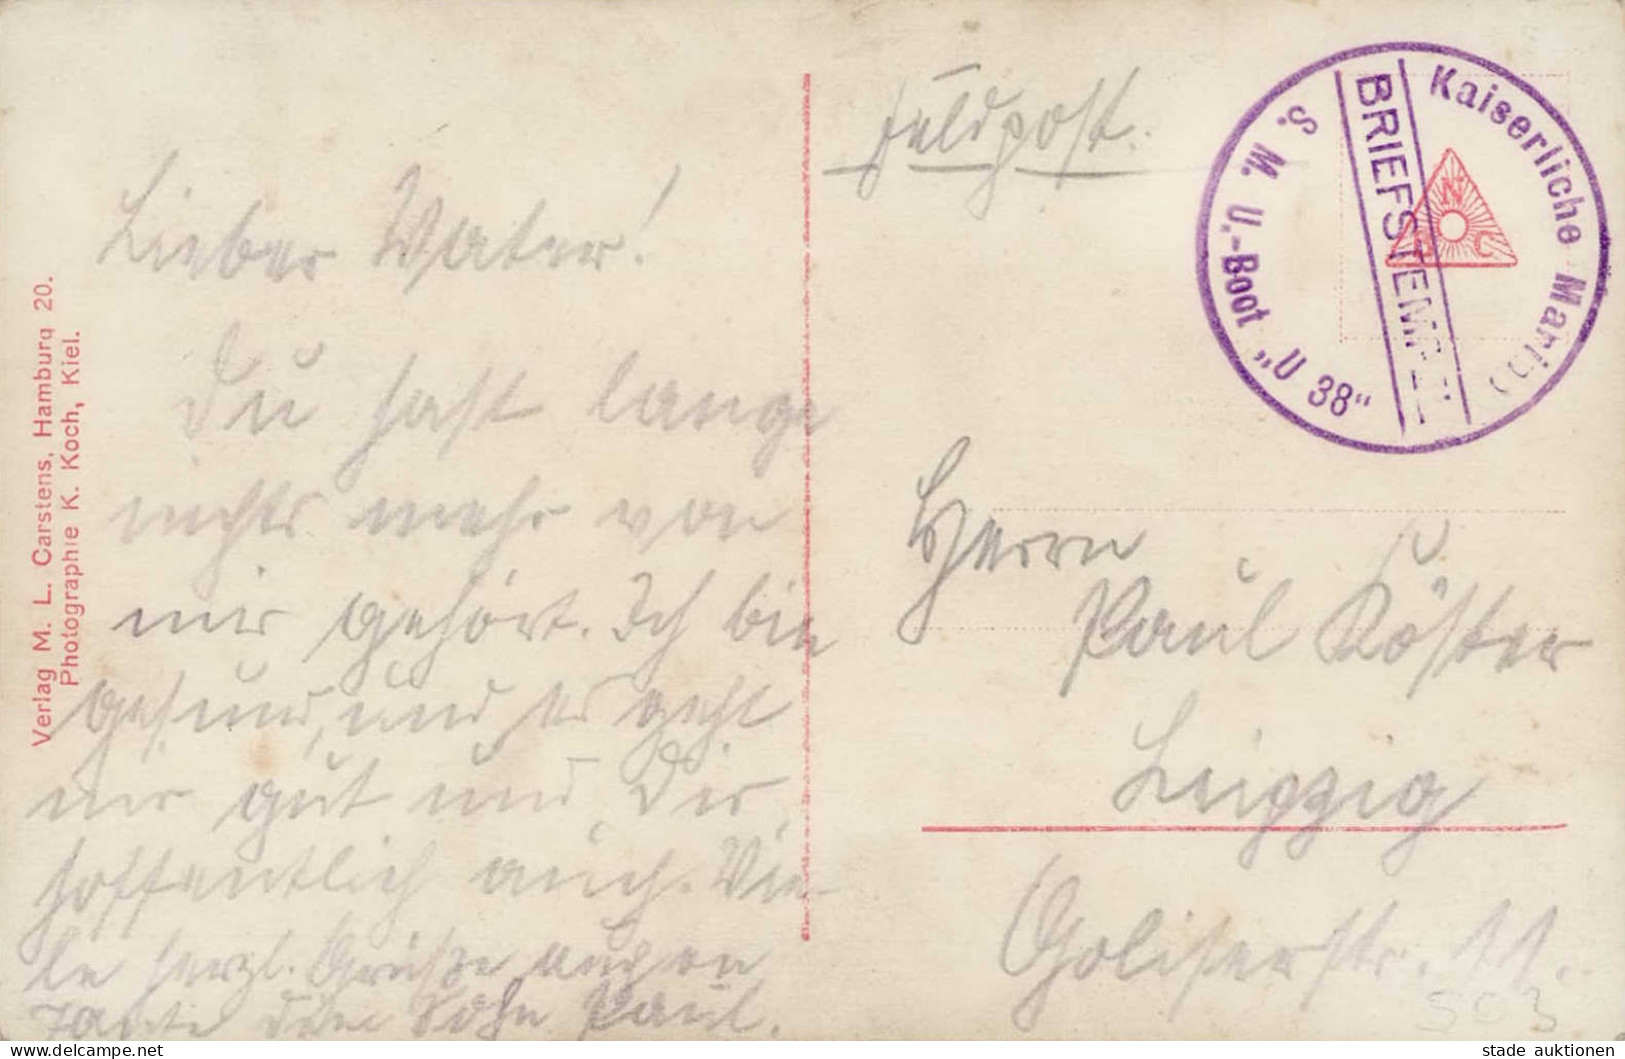 Verlag M. L. Carstens, Hamburg 20.
Photographie K. Koch, Kiel.
Lieber Vater!
Du hast lange
nichts mehr von
mir gehört. Ich bin
gesund, und es geht
mir gut und Dir
hoffentlich auch. Vie-
le herzl. Grüße auch an
Tante Dein Sohn Paul.
Feldpost.
Kaiserliche Marine
BRIEFSTEMPEL
S. M. U.-Boot „U 38"
N
C
Herrn
Paul Köster
Leipzig
Goliserstr. 11.
503
delcampe.net
stade auktionen